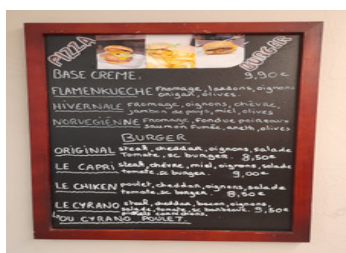 PIZZA
BURGER
BASE CREME. 9,90€
FLAMENKUECHE fromage, lardons, oignons
origan, olives.
HIVERNALE fromage, oignons, chèvre,
jambon de pays, miel, olives
NORVEGIENNE fromage, fondue poireaux
saumon fumée, aneth, olives
BURGER
ORIGINAL steak, cheddar, oignons, salade
Tomate, sc burger. 8,50€
LE CAPRI steak, chèvre, miel, oignons, salade
tomate, sc burger. 9,00€
LE CHIKEN poulet, cheddar, oignons, salade
tomate, sc burger. 8,50€
LE CYRANO steak, cheddar, bacon, oignons,
salade, tomate, sc barbecue. 9,50€
OU CYRANO POULET.